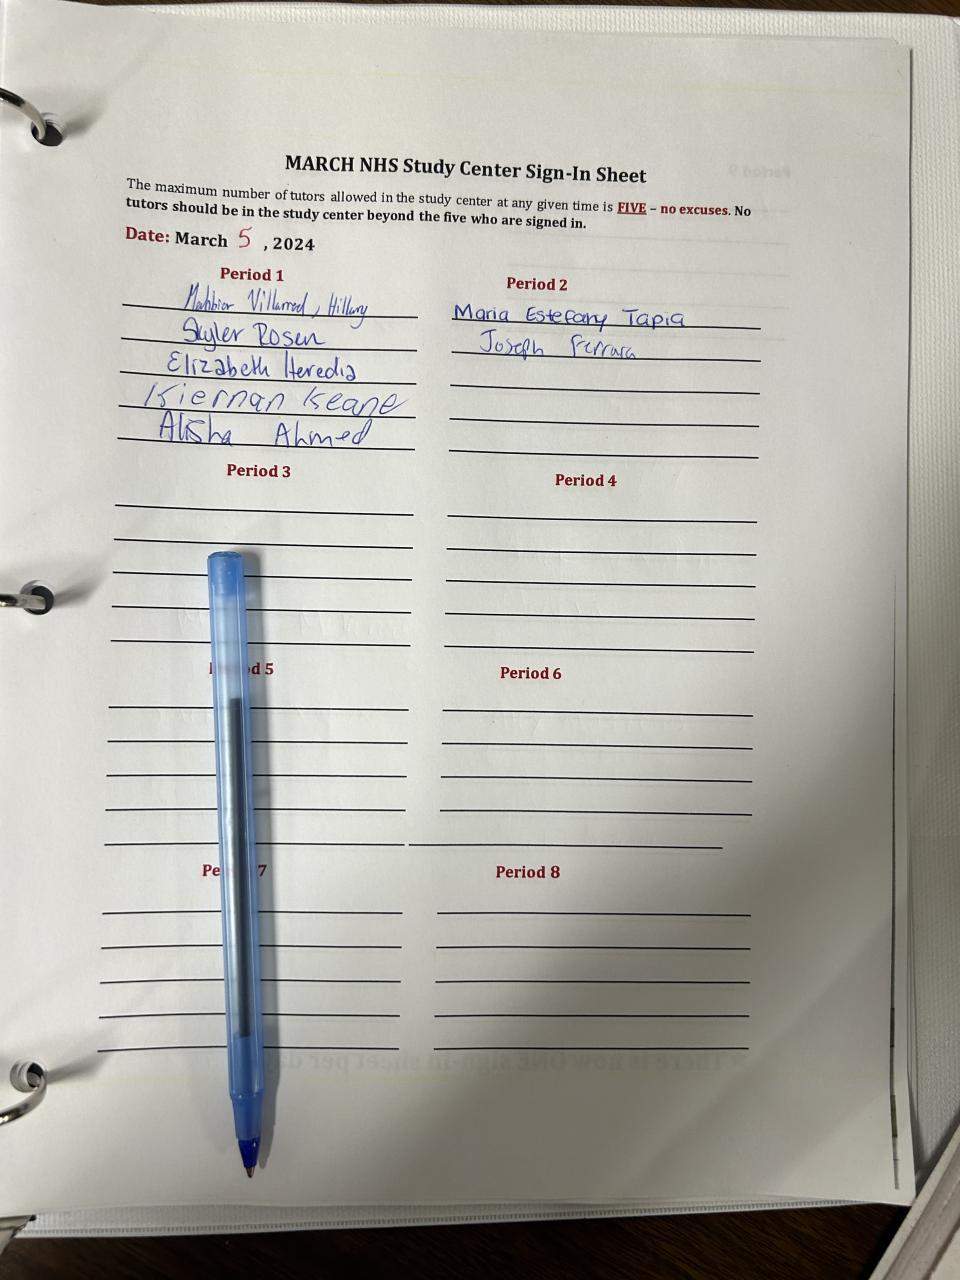 MARCH NHS Study Center Sign-In Sheet
The maximum number of tutors allowed in the study center at any given time is FIVE – no excuses. No
tutors should be in the study center beyond the five who are signed in.
Date: March 5 , 2024
Period 1
Villarreal, Hillary
Skyler Rosen
Elizabeth Heredia
Kiernan Keane
Alisha Ahmed
Period 2
Maria Estefany Tapia
Joseph Ferrara
Period 3
Period 4
d 5
Period 6
Pe 7
Period 8
Period 9
There is now ONE sign-in sheet per day